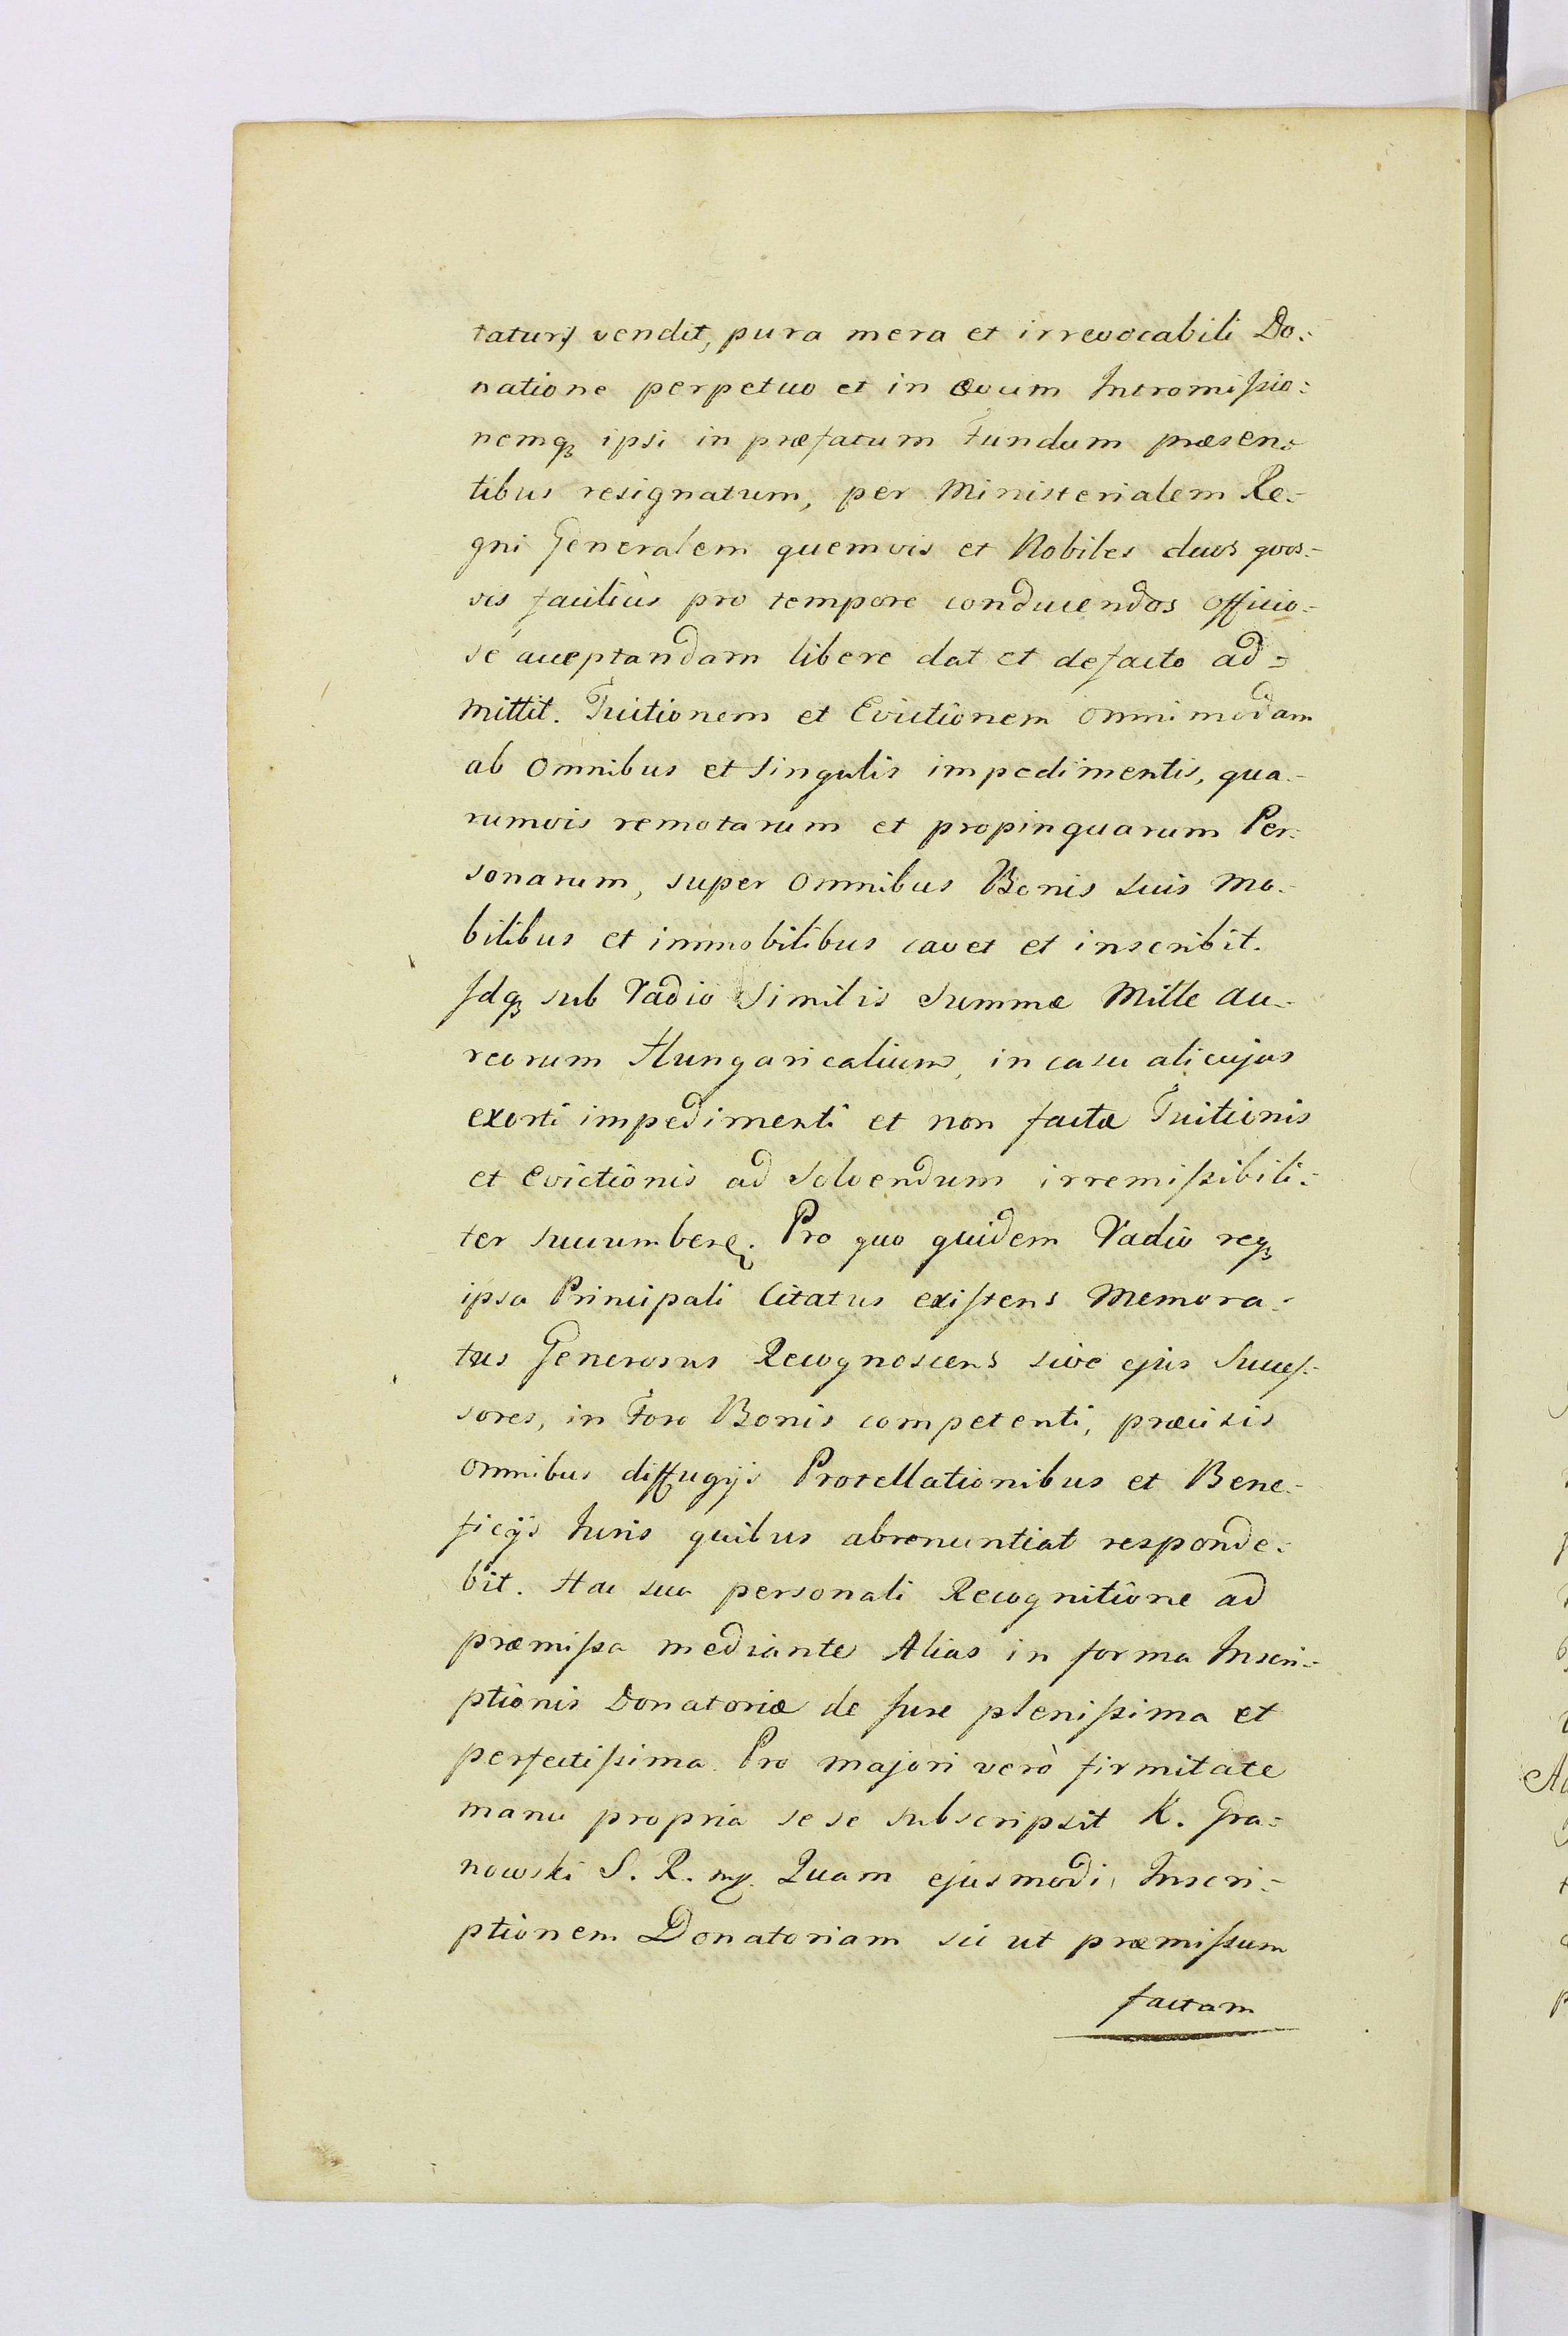 taturq vendit, pura mera et irrevocabili Do:
natione perpetuo et in ævum Intromissio:
nemq ipsi in præfatum Fundum præsen:
tibus resignatum, per Ministerialem Re:
gni Generalem quemvis et Nobiles duos quos:
vis faciliùs pro tempore conducendos officio:
sé acceptandam libere dat et defacto ad:
mittit. Tuitionem et Evictionem omnimodam
ab omnibus et singulis impedimentis, qua:
rumvis remotarum et propinquarum Per:
sonarum, super omnibus Bonis suis Mo:
bilibus et immobilibus cavet et inscribit.
Idq sub Vadio Similis Summæ Mille au:
reorum Hungaricalium, in casu alicujus
exorti impedimenti et non factæ Tuitionis
et evictionis ad solvendum irremissibili:
ter succumberę. Pro quo quidem Vadio req
ipsa Principali Citatus existens Memora:
tus Generosus Recognoscens sive ejus Succes:
sores, in Foro Bonis competenti, præcisis
omnibus diffugijs Protellationibus et Bene:
ficijs Iuris quibus abrenuntiat responde:
bit. Hac sua personali Recognitione ad
præmissa mediante Alias in forma Inscri:
ptionis Donatoriæ de Jure plenissima et
perfectissima. Pro majori verò firmitate
manu propria se se subscripsit K. Gra:
nowski S. R. mp. Quam ejusmodi Inscri:
ptionem Donatoriam sic ut præmissum
factam